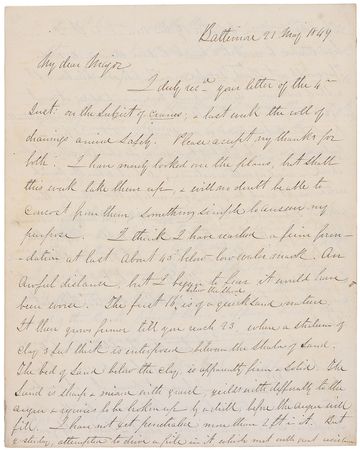 Baltimore 21 May 1849
My dear Major
I duly recd. your letter of the 4th
Inst. on the subject of Cranes; & last week the roll of
drawings arrived safely. Please accept my thanks for
both. I have merely looked over the plans, but shall
this week take them up, & will no doubt be able to
concoct from them, something simple to answer my
purpose. I think I have reached a firm foun-
dation at last about 45 below low water mark. An
Awful distance, but I began to fear it would have
been worse. The first 16 is of a quicksand nature.
It then grows firmer till you reach 23, when a stratum of
Clay 3 feet thick is interposed between the strata of Sand.
The bed of Sand below the Clay, is apparently firm & solid. The
Sand is sharp & mixed with gravel, yields with difficulty to the
augur & requires to be broken up by a drill, before the augur will
fill. I have not yet penetrated more than 2 ft in it. But
yesterday, attempted to drive a pile in it, which met with great resistance